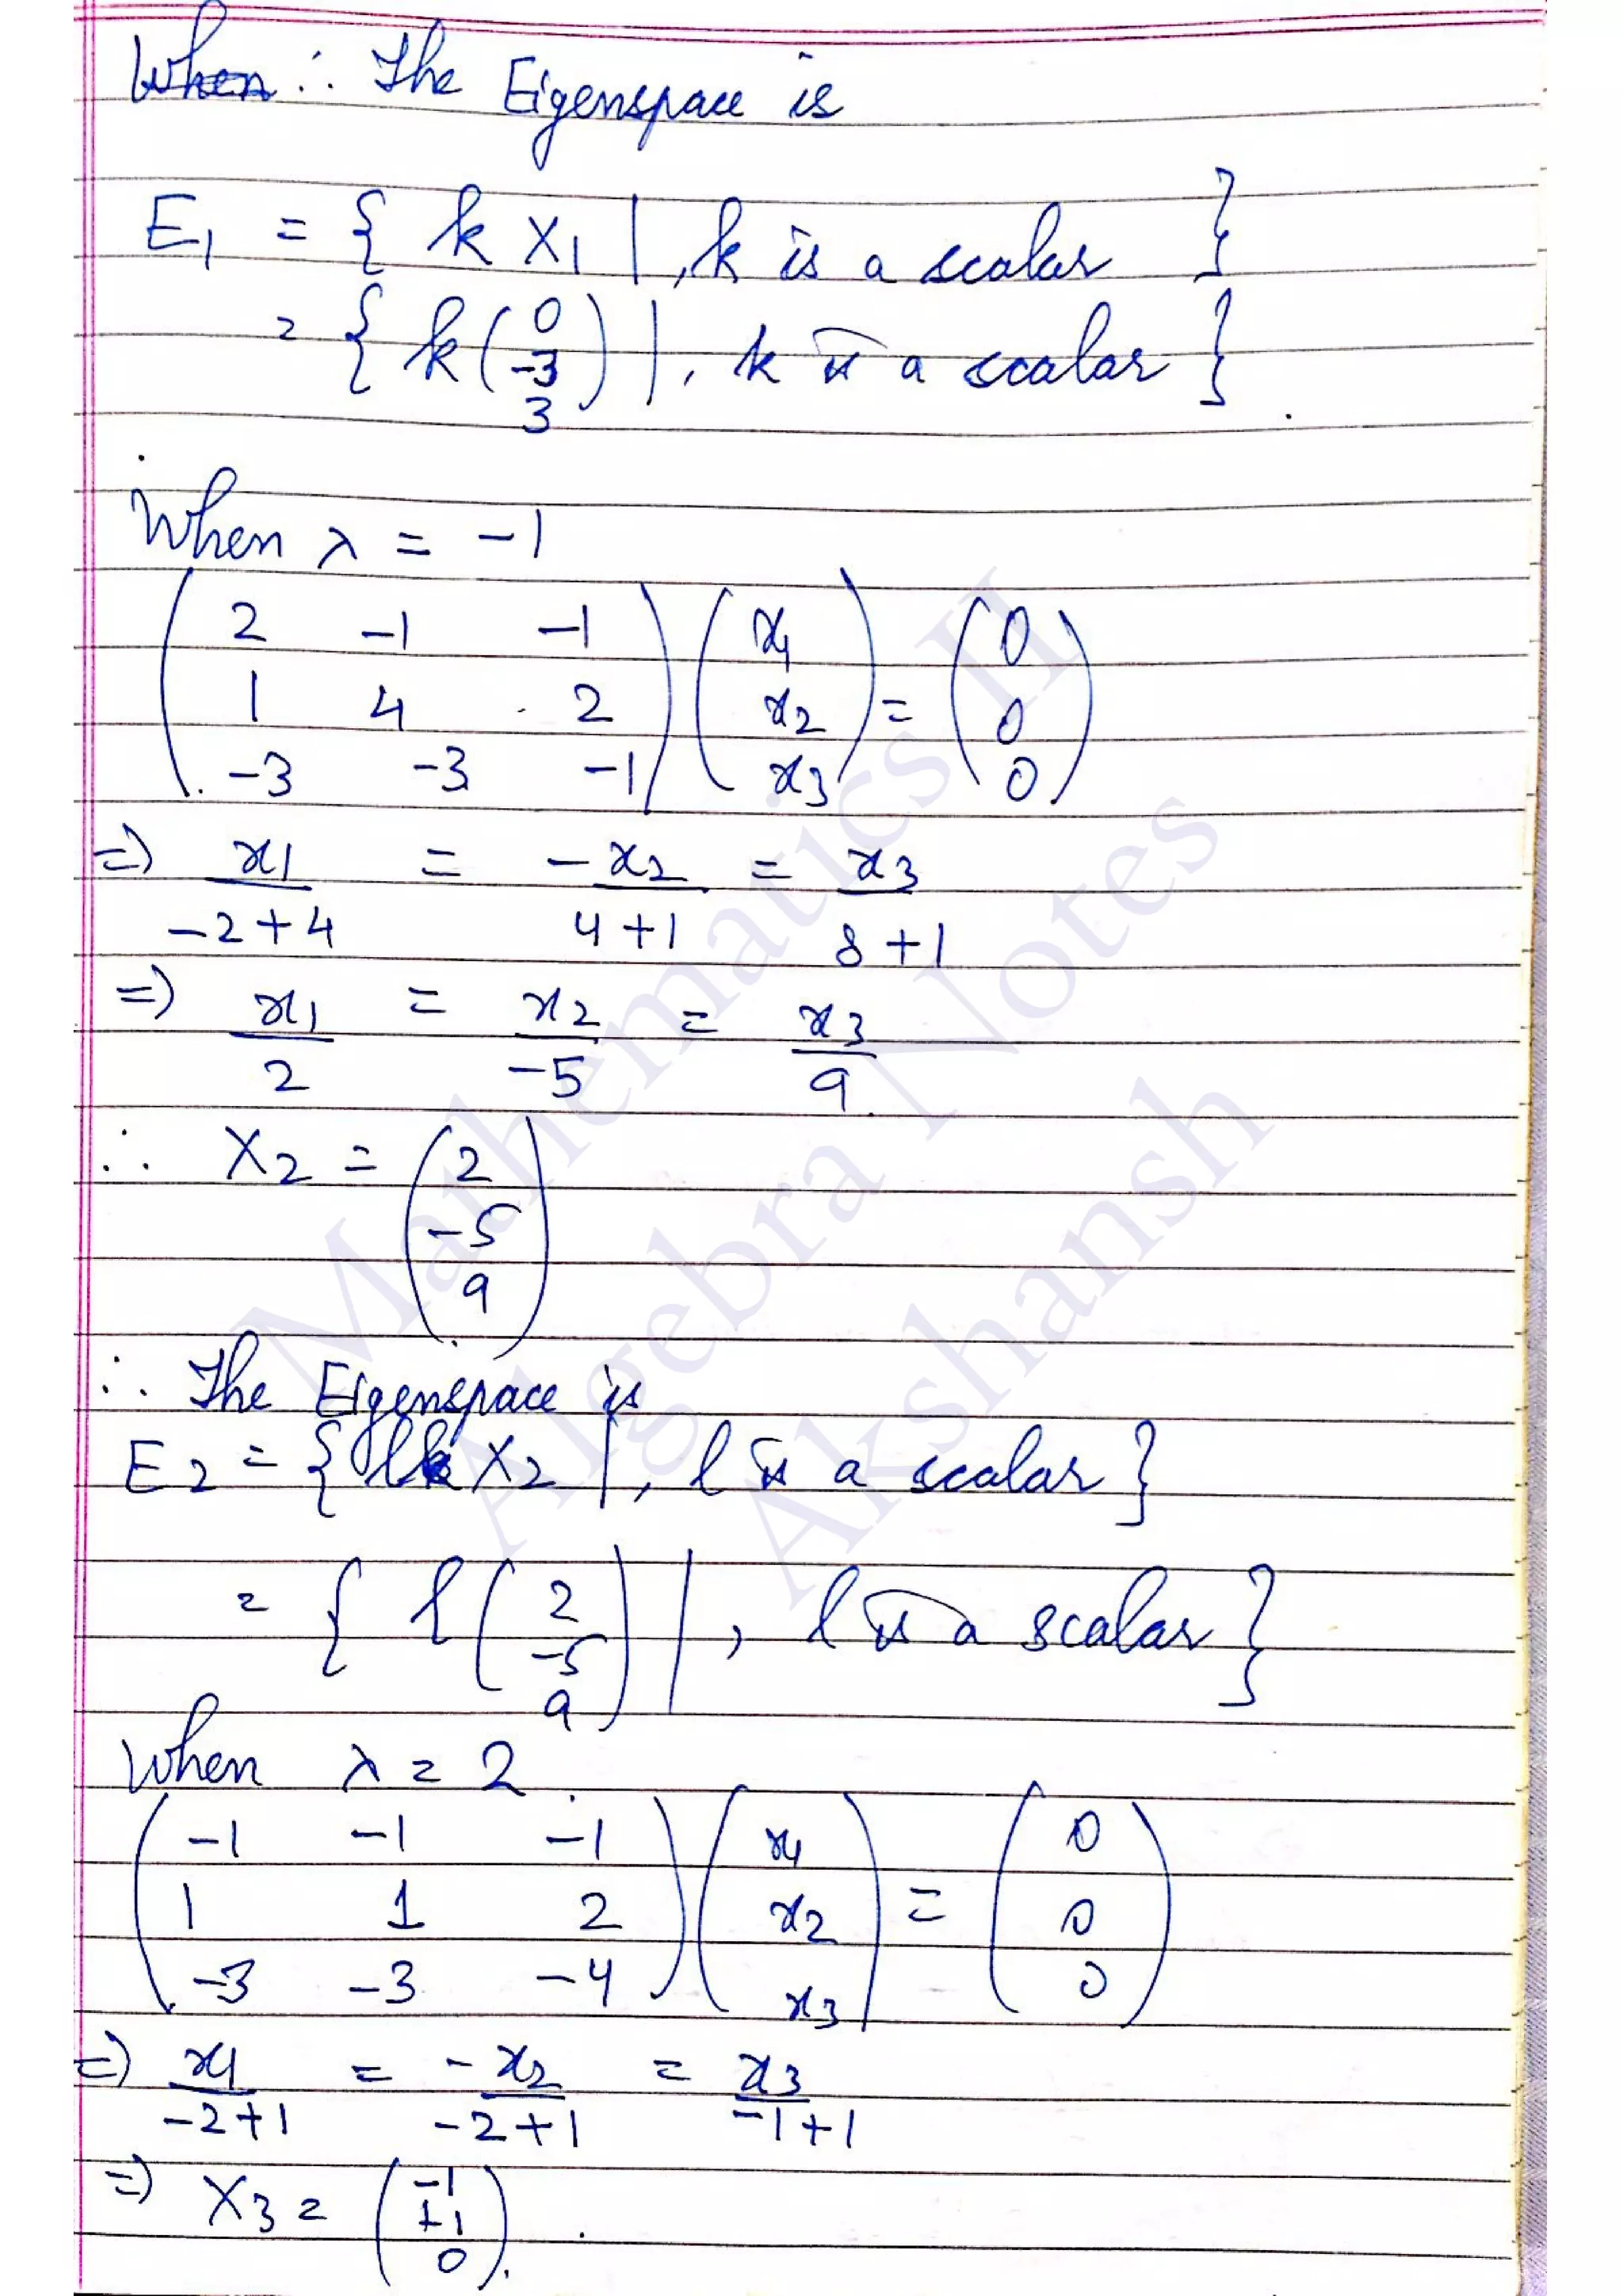 When ∴ The Eigenspace is
E1 = { k X1 | , k is a scalar }
= { k ( 0 -3 3 ) | , k is a scalar } .
When λ = -1
( 2 -1 -1 ) ( x1 ) = ( 0 )
( 1 4 2 ) ( x2 ) ( 0 )
( -3 -3 -1 ) ( x3 ) ( 0 )
=) x1/(-2+4) = -x2/(4+1) = x3/(8+1)
=) x1/2 = x2/-5 = x3/9
∴ X2 = ( 2
-5
9 )
∴ The Eigenspace is
E2 = { l X2 | , l is a scalar }
= { l ( 2 -5 9 ) | , l is a scalar }
When λ = 2
( -1 -1 -1 ) ( x1 ) = ( 0 )
( 1 1 2 ) ( x2 ) ( 0 )
( -3 -3 -4 ) ( x3 ) ( 0 )
=) x1/(-2+1) = -x2/(-2+1) = x3/(-1+1)
=) X3 = ( -1
+1
0 ) .
Mathematics II
Algebra Notes
Akshansh